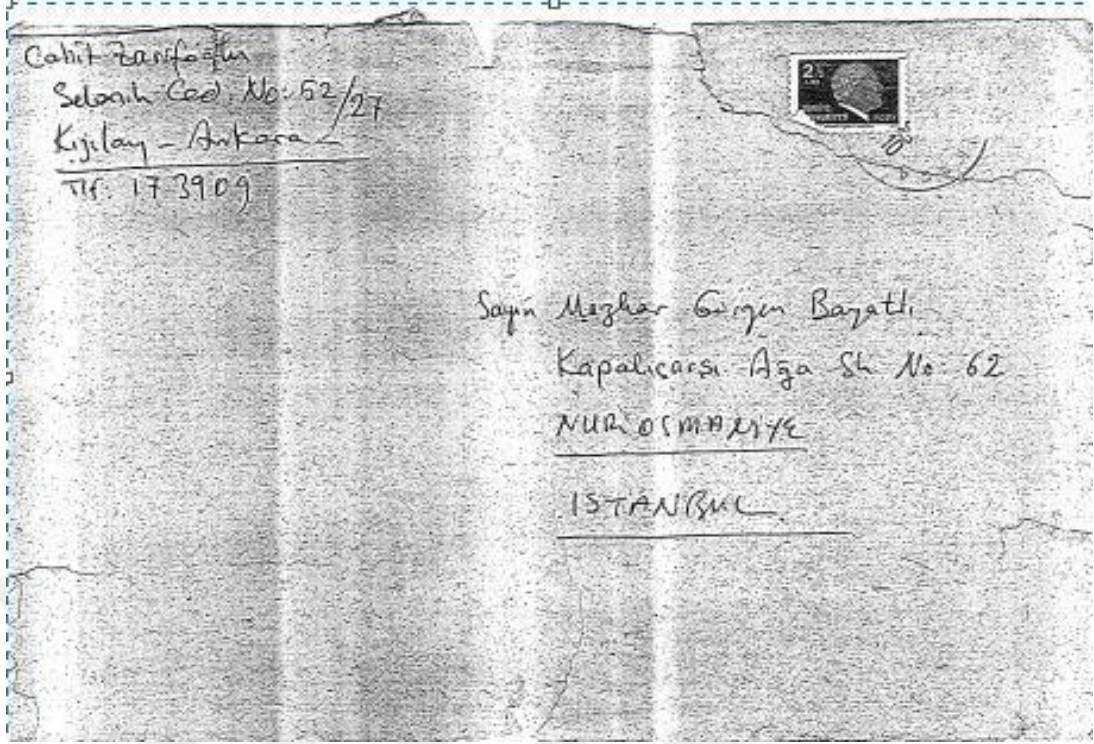 Cahit Zarifoğlu
Selanik Cad. No: 62/27
Kızılay - Ankara
Tlf: 17 39 09
Sayın Mazhar Gürgen Bayatlı
Kapalıçarşı Ağa Sk No: 62
NURİOSMANİYE
İSTANBUL